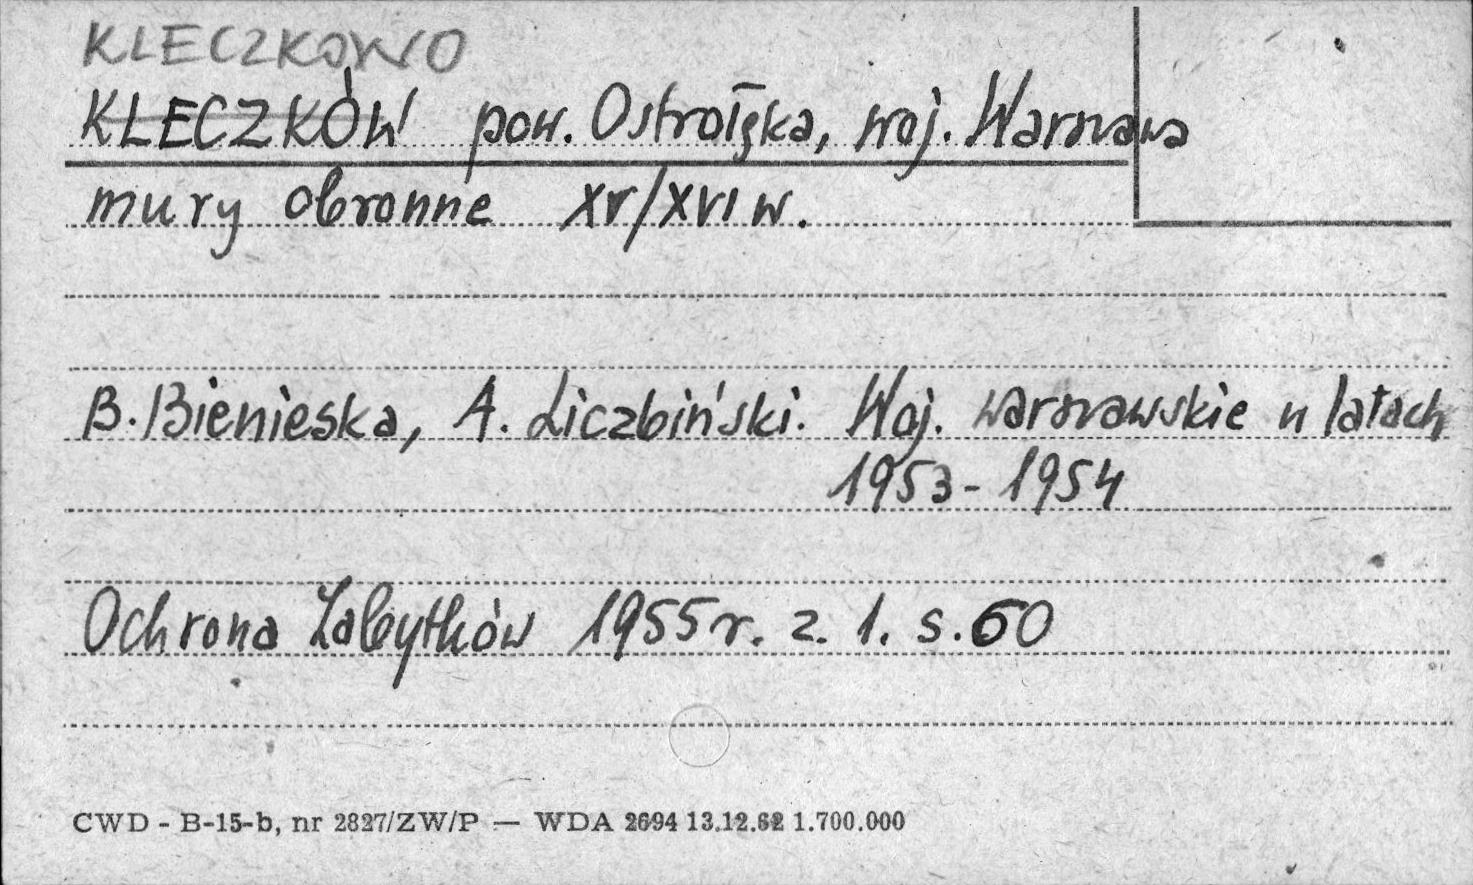 KLECZKOWO
KLECZKÓW pow. Ostrołęka, woj. Warszawa
mury obronne XV/XVI w.
B. Bienieska, A. Liczbiński. Woj. warszawskie w latach
1953-1954
Ochrona Zabytków 1955 r. z. 1. s. 60
CWD - B-15-b, nr 2827/ZW/P — WDA 2694 13.12.62 1.700.000